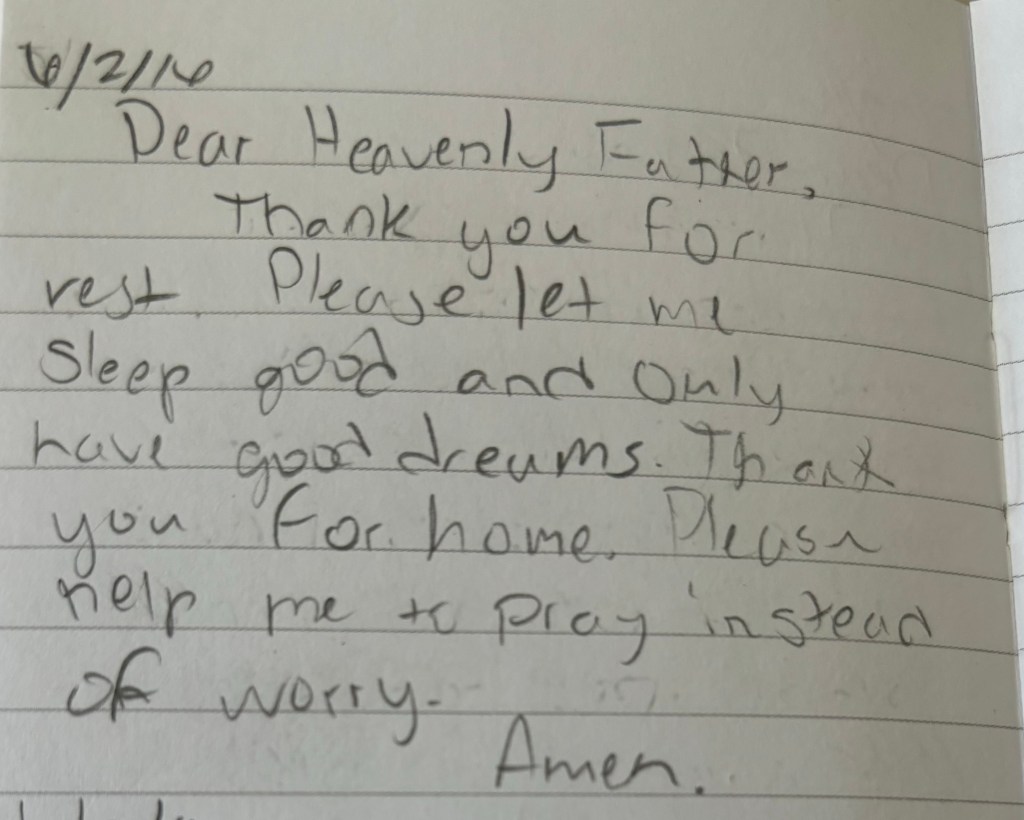 6/2/16
Dear Heavenly Father,
Thank you for
rest. Please let me
sleep good and only
have good dreams. Thank
you for home. Please
help me to pray instead
of worry.
Amen.